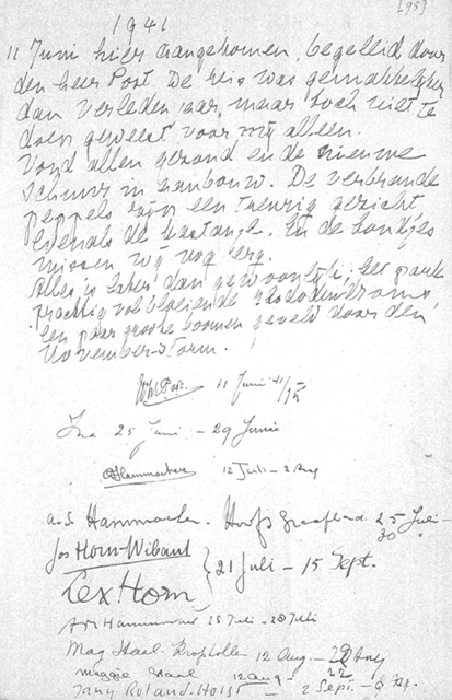 [95]
1941
11 Juni hier aangekomen, begeleid door
den heer Post. De reis was gemakkelijker
dan verleden jaar, maar toch niet te
doen geweest voor mij alleen.
Vond allen gezond en de nieuwe
schuur in aanbouw. De verbrande
peppels zijn een treurig gezicht
evenals de kastanje. En de hondjes
missen wij nog erg.
Alles is later dan gewoonlijk; het park
prachtig vol bloeiende rhododendrons,
een paar groote boomen geveld door den
November-storm.
Post. 11 Juni '41/12
Ina 25 Juni - 29 Juni
Hammacher 12 Juli - 2 Aug
A.S. Hammacher. 25 Juli -
30
Jos Horn-Wibaut
21 Juli - 15 Sept.
Lex Horn
Hammacher 25 Juli - 28 Juli
Mag Staal-Kropholler 12 Aug. - 22 Aug
Maggie Staal 12 Aug - 22
Jany Roland-Holst - 2 Sept. - 9 Sep.